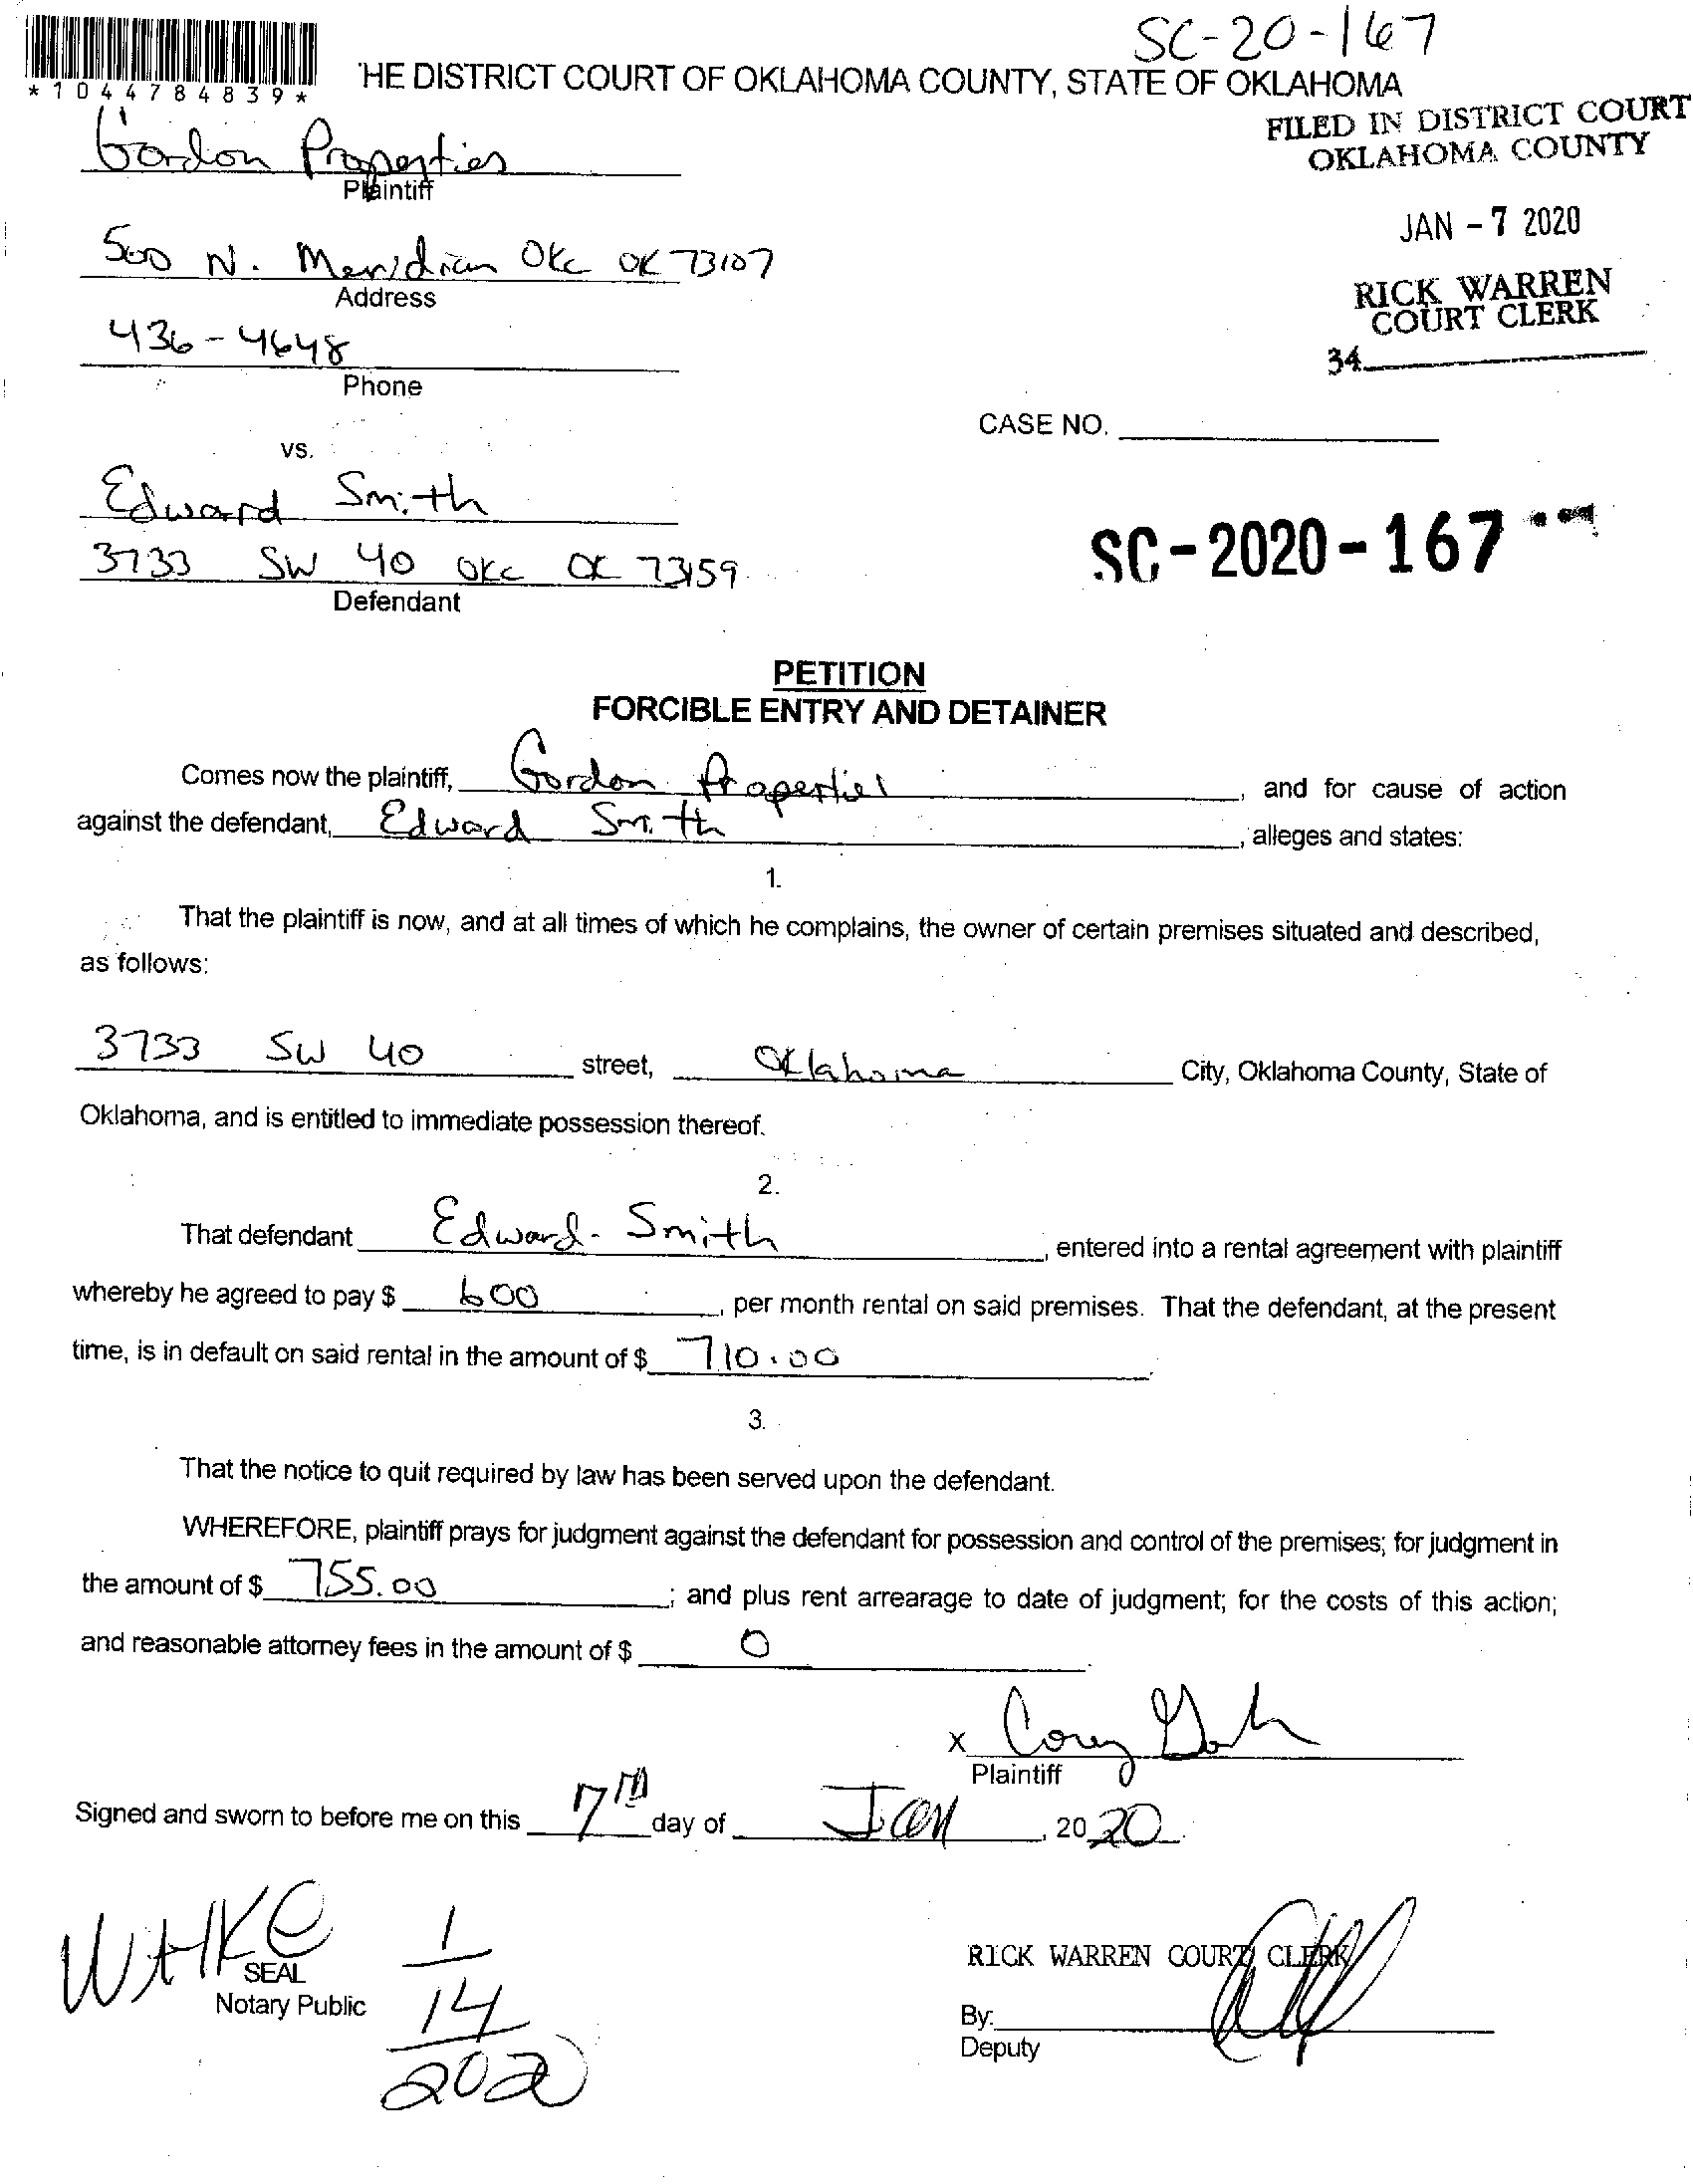 SC-20-167
*1044784839*
HE DISTRICT COURT OF OKLAHOMA COUNTY, STATE OF OKLAHOMA
FILED IN DISTRICT COURT
OKLAHOMA COUNTY
Gordon Properties
Plaintiff
JAN - 7 2020
500 N. Meridian OKC OK 73107
Address
RICK WARREN
COURT CLERK
436-4648
34
Phone
CASE NO.
vs.
Edward Smith
SC-2020-167
3733 SW 40 OKC OK 73159
Defendant
PETITION
FORCIBLE ENTRY AND DETAINER
Comes now the plaintiff, Gordon Properties, and for cause of action
against the defendant, Edward Smith, alleges and states:
1.
That the plaintiff is now, and at all times of which he complains, the owner of certain premises situated and described,
as follows:
3733 SW 40 street, Oklahoma City, Oklahoma County, State of
Oklahoma, and is entitled to immediate possession thereof.
2.
That defendant Edward Smith, entered into a rental agreement with plaintiff
whereby he agreed to pay $ 600, per month rental on said premises. That the defendant, at the present
time, is in default on said rental in the amount of $ 710.00.
3.
That the notice to quit required by law has been served upon the defendant.
WHEREFORE, plaintiff prays for judgment against the defendant for possession and control of the premises; for judgment in
the amount of $ 755.00; and plus rent arrearage to date of judgment; for the costs of this action;
and reasonable attorney fees in the amount of $ 0.
X Corey
Plaintiff
Signed and sworn to before me on this 7th day of Jan, 2020.
SEAL
Notary Public
1
14
2020
RICK WARREN COURT CLERK
By:
Deputy